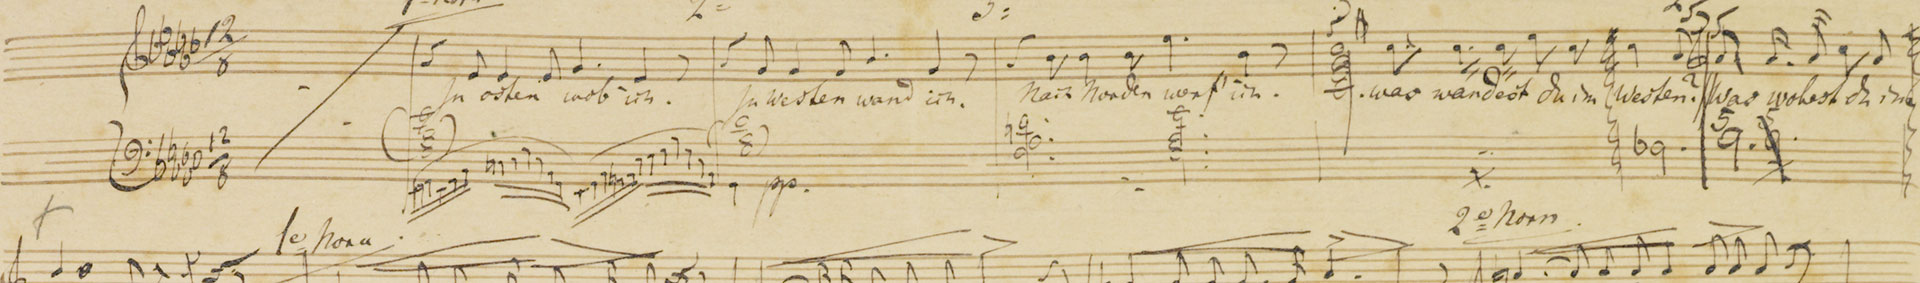 1e Horn
2= 3=
12/8
In osten wob' ich. In Westen wand ich. Nach Norden werf' ich. was wandest du im Westen? Was wobest du im
12/8
pp.
1e Horn.
2e Horn.